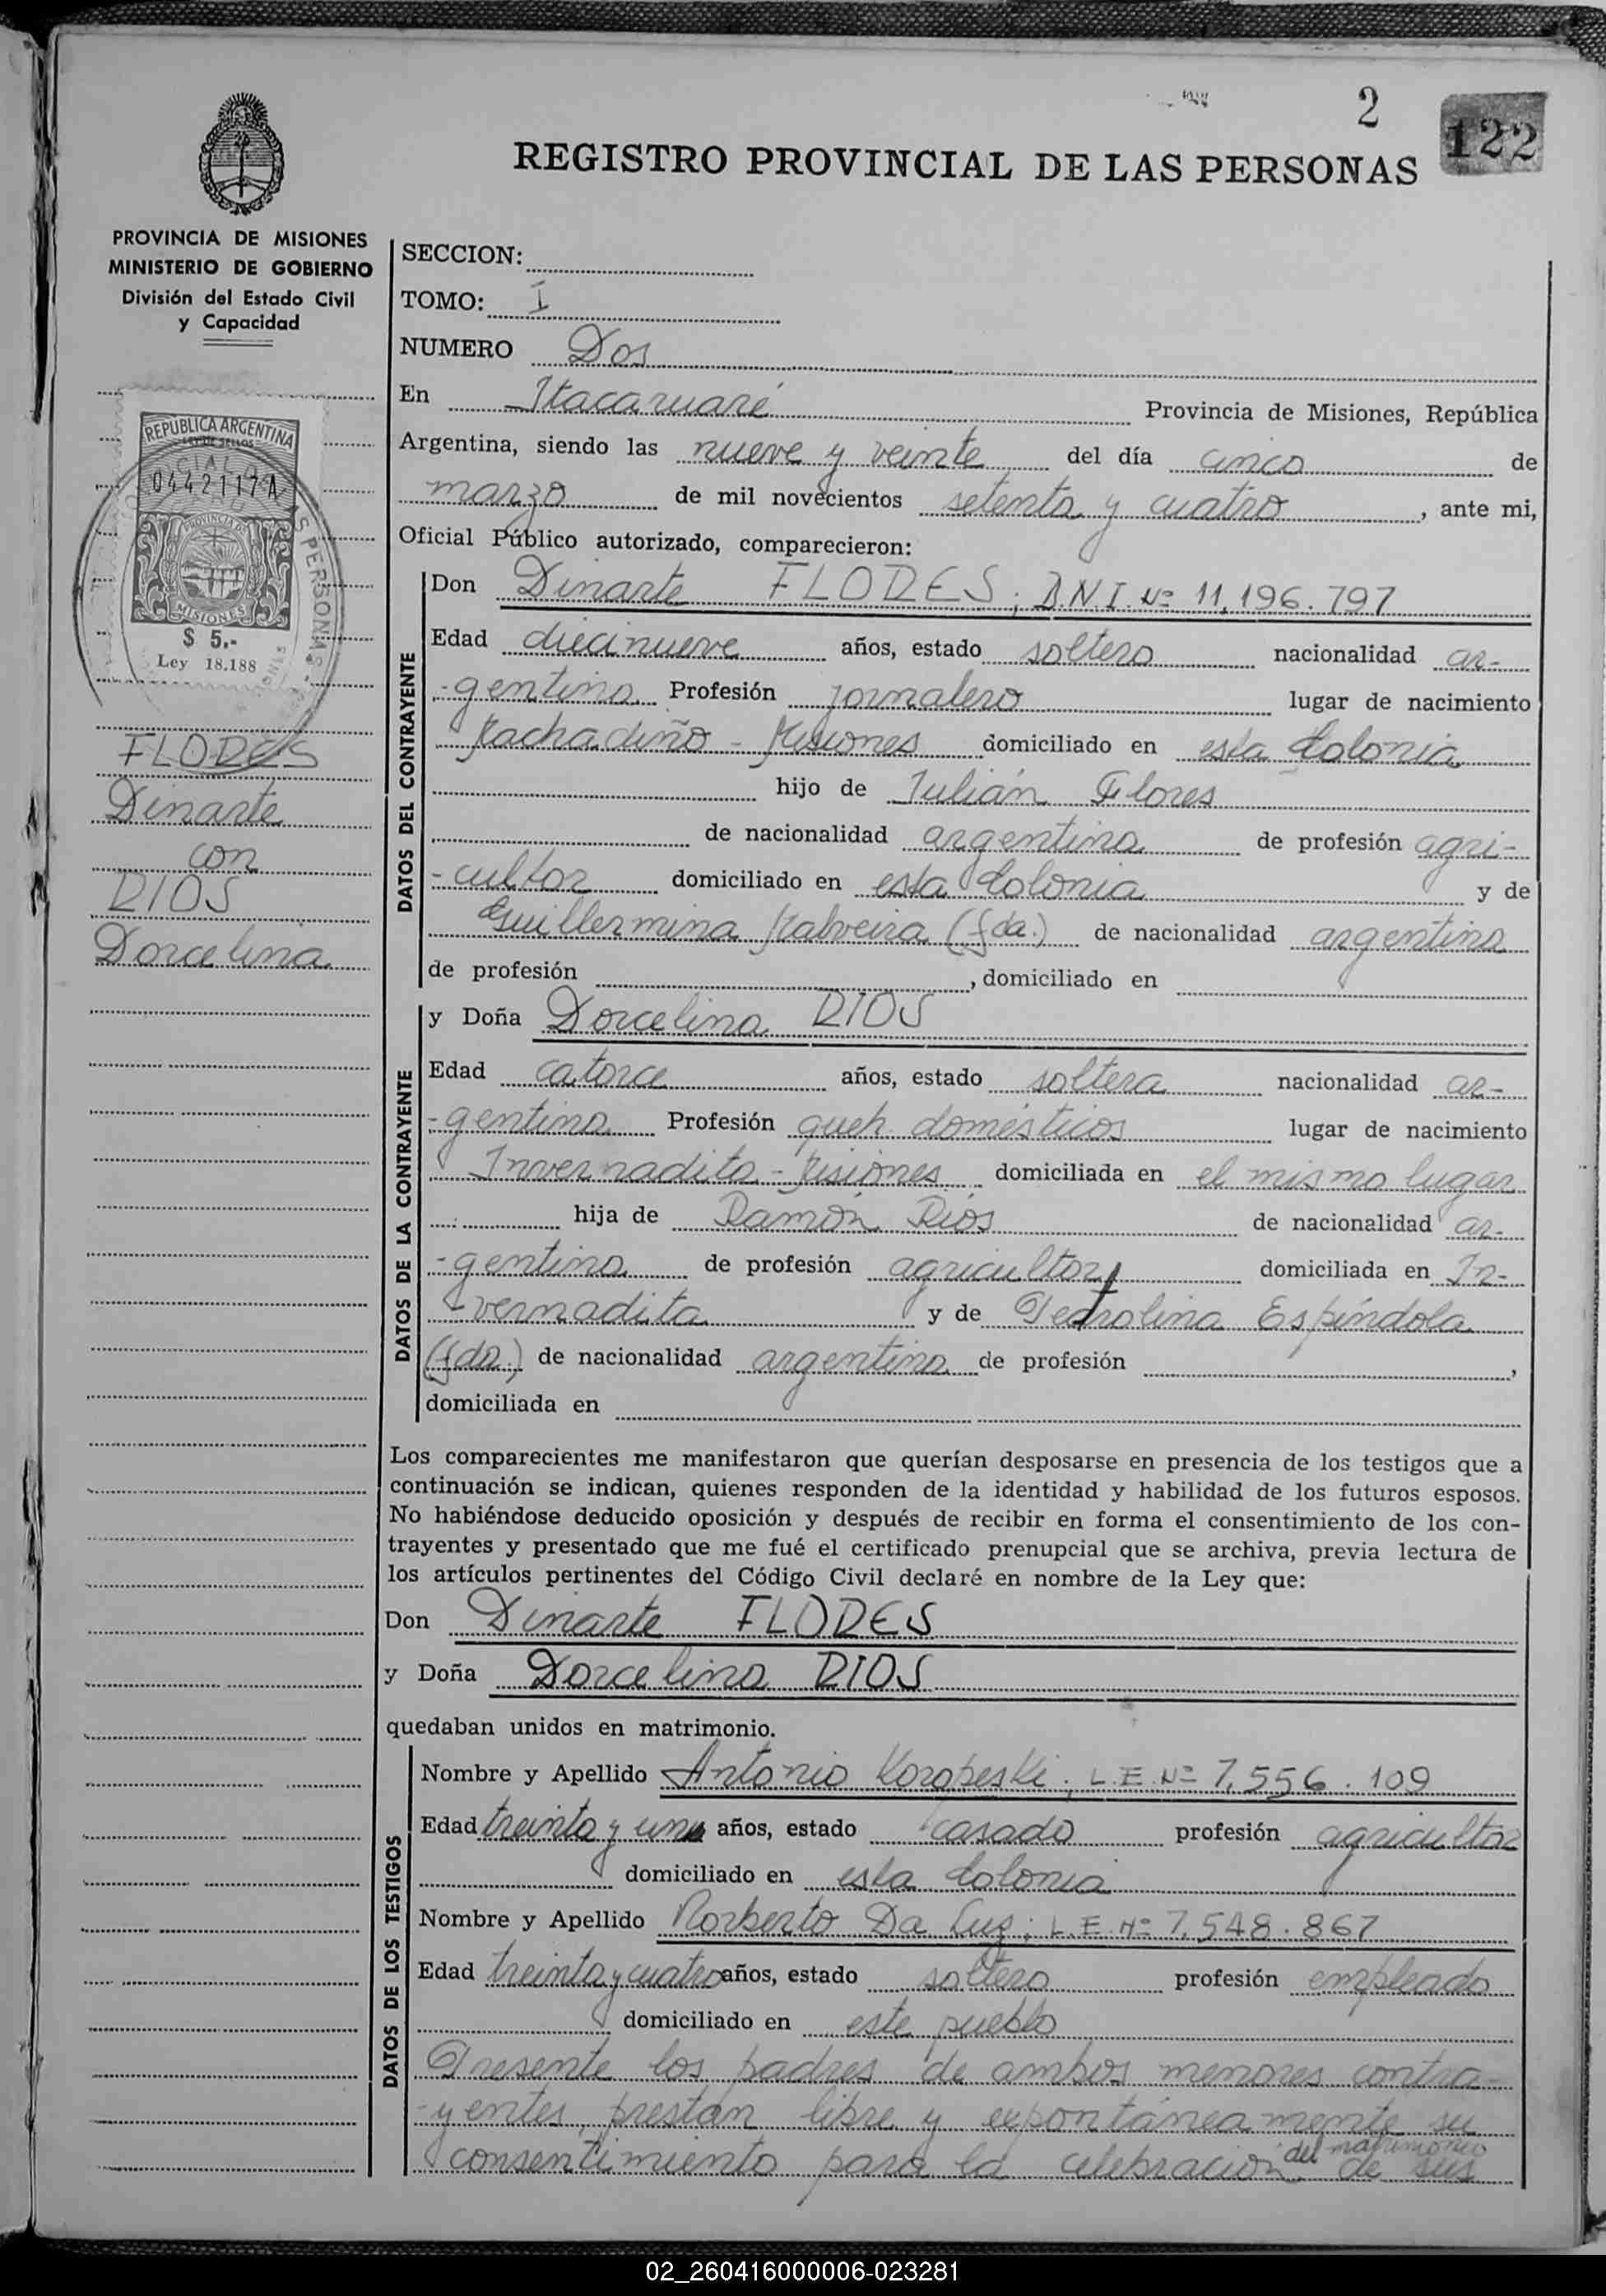 2
122
REGISTRO PROVINCIAL DE LAS PERSONAS
PROVINCIA DE MISIONES
MINISTERIO DE GOBIERNO
División del Estado Civil
y Capacidad
REPUBLICA ARGENTINA
LEY DE SELLOS
0442117 A
PROVINCIA DE
MISIONES
$ 5.-
Ley 18.188
FLORES
Dinarte
con
RIOS
Dorcelina
SECCION:
TOMO: I
NUMERO Dos
En Itacaruaré Provincia de Misiones, República
Argentina, siendo las nueve y veinte del día cinco de
marzo de mil novecientos setenta y cuatro, ante mi,
Oficial Público autorizado, comparecieron:
DATOS DEL CONTRAYENTE
Don Dinarte FLORES; D.N.I. Nº 11.196.797
Edad diecinueve años, estado soltero nacionalidad ar-
-gentina Profesión jornalero lugar de nacimiento
Machadiño - Misiones domiciliado en esta Colonia
hijo de Julián Flores
de nacionalidad argentina de profesión agri-
-cultor domiciliado en esta Colonia y de
Guillermina (fda.) de nacionalidad argentina
de profesión , domiciliado en
DATOS DE LA CONTRAYENTE
y Doña Dorcelina RIOS
Edad catorce años, estado soltera nacionalidad ar-
-gentina Profesión queh. domésticos lugar de nacimiento
Invernadita - Misiones domiciliada en el mismo lugar
hija de Ramón Ríos de nacionalidad ar-
-gentina de profesión agricultor domiciliada en In-
-vernadita y de Pedrolina Espíndola
(fda.) de nacionalidad argentina de profesión ,
domiciliada en
Los comparecientes me manifestaron que querían desposarse en presencia de los testigos que a
continuación se indican, quienes responden de la identidad y habilidad de los futuros esposos.
No habiéndose deducido oposición y después de recibir en forma el consentimiento de los con-
trayentes y presentado que me fué el certificado prenupcial que se archiva, previa lectura de
los artículos pertinentes del Código Civil declaré en nombre de la Ley que:
Don Dinarte FLORES
y Doña Dorcelina RIOS
quedaban unidos en matrimonio.
DATOS DE LOS TESTIGOS
Nombre y Apellido Antonio Koropeski; L.E. Nº 7.556.109
Edad treinta y uno años, estado casado profesión agricultor
domiciliado en esta Colonia
Nombre y Apellido Norberto Da Luz; L.E. Nº 7.548.867
Edad treinta y cuatro años, estado soltero profesión empleado
domiciliado en este pueblo
Presente los padres de ambos menores contra-
-yentes, prestan libre y expontáneamente su
consentimiento para la celebración del matrimonio de sus
02_260416000006-023281